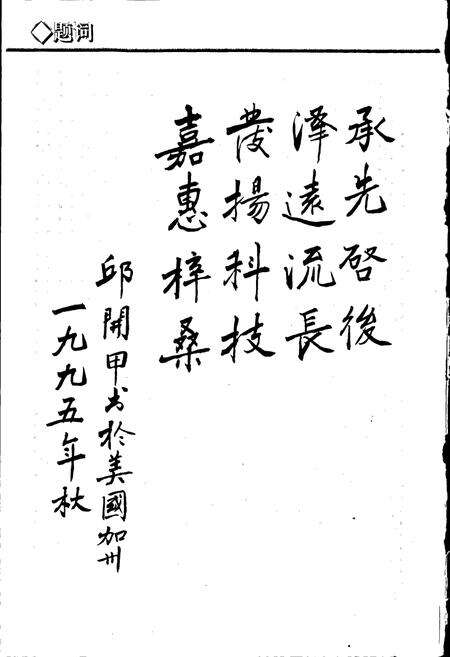 ◇题词
承先啓後
澤遠流長
發揚科技
嘉惠梓桑
邱開甲书於美國加州
一九九五年秋